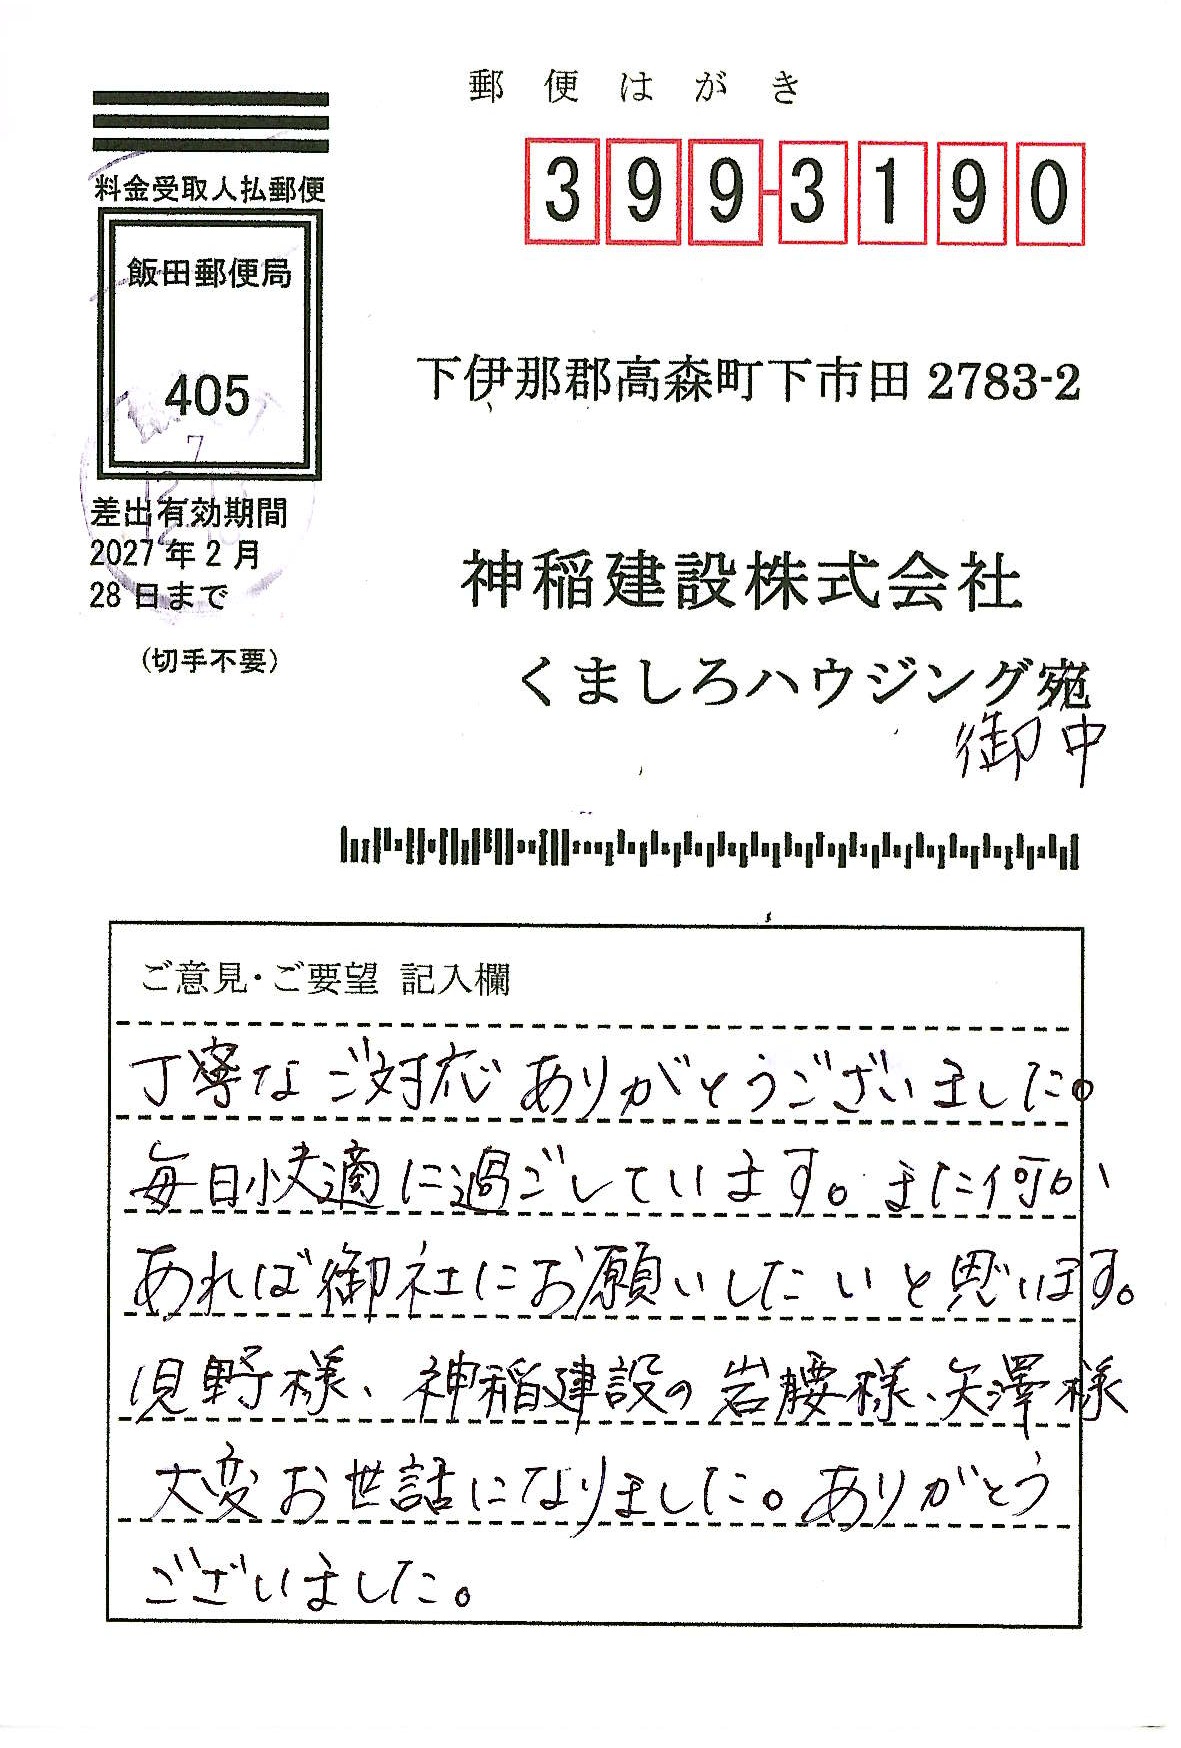 郵便はがき
料金受取人払郵便
飯田郵便局
405
差出有効期間
2027年2月
28日まで
(切手不要)
399-3190
下伊那郡高森町下市田2783-2
神稲建設株式会社
くましろハウジング宛
御中
ご意見・ご要望 記入欄
丁寧なご対応ありがとうございました。
毎日快適に過ごしています。また何か
あれば御社にお願いしたいと思います。
児野様、神稲建設の岩腰様、矢澤様
大変お世話になりました。ありがとう
ございました。